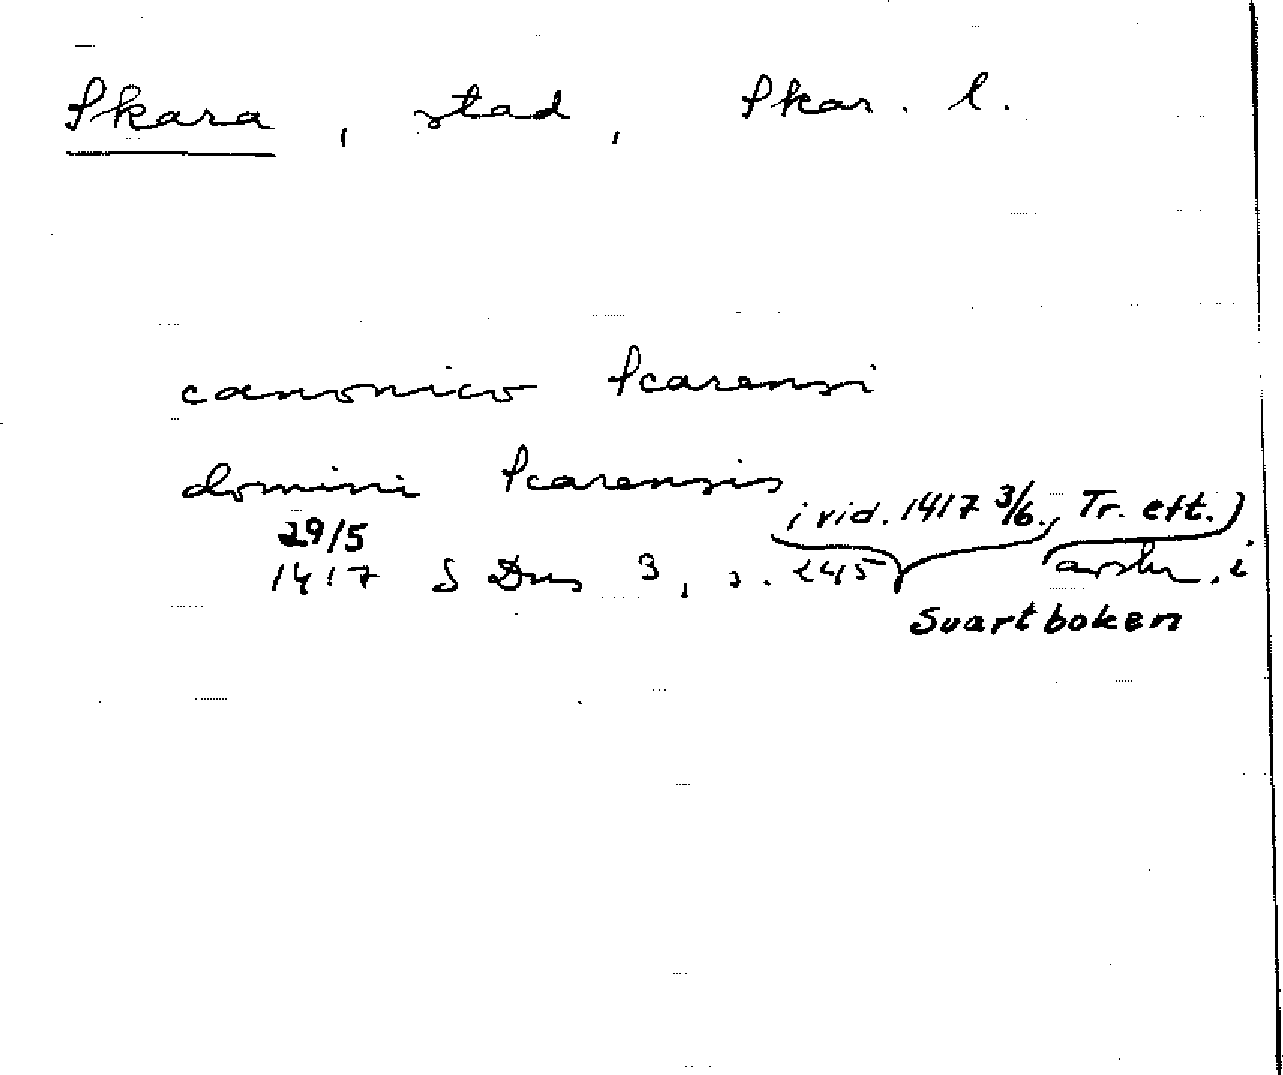 Skara, stad, Skar. l.
canonico Scarensi
domini Scarensis
29/5 i vid. 1417 3/6., Tr. eft.)
1417 SDns 3, s. 245 avskr. i
Svartboken